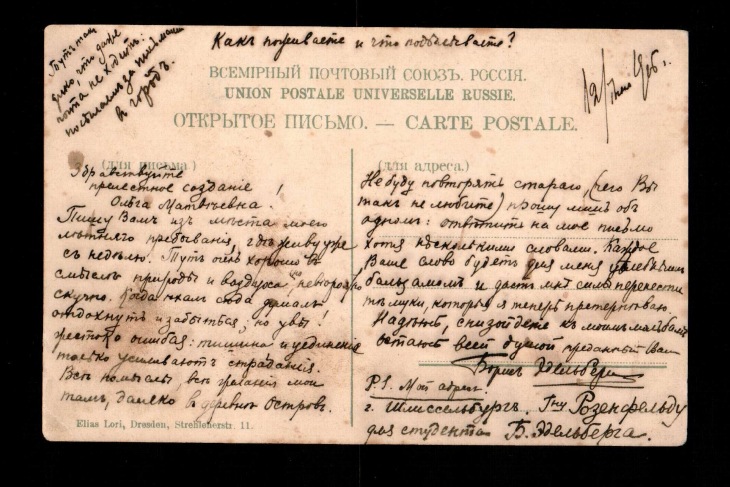 Какъ поживаете и что подѣлываете?
Тутъ такъ
дико, что даже
почта не ходитъ:
посылаемъ за письмами
въ городъ.
12/ 1906 г.
ВСЕМІРНЫЙ ПОЧТОВЫЙ СОЮЗЪ. РОССІЯ.
UNION POSTALE UNIVERSELLE RUSSIE.
ОТКРЫТОЕ ПИСЬМО. — CARTE POSTALE.
(для письма)
Здравствуйте
прелестное созданіе!
Ольга Матвѣевна.
Пишу Вамъ изъ мѣста моего
лѣтняго пребыванія, гдѣ живу уже
съ недѣлю. Тутъ очень хорошо въ
смыслѣ природы и воздуха, но невообраз.
скучно. Когда ѣхалъ сюда думалъ
отдохнуть и забыться; но увы!
жестоко ошибся: тишина и уединеніе
только усиливаютъ страданія.
Всѣ помыслы, всѣ мои
тамъ, далеко въ деревнѣ Островъ.
Elias Lori, Dresden, Strehlenerstr. 11.
(для адреса.)
Не буду повторять стараго, (чего Вы
такъ не любите) прошу лишь объ
одномъ: отвѣтить на мое письмо
хотя нѣсколькими словами. Каждое
Ваше слово будетъ для меня цѣлебнымъ
бальзамомъ и дастъ мнѣ силы перенести
тѣ муки, которыя я теперь претерпѣваю.
Надѣюсь, снизойдете къ моимъ мольбамъ
остаюсь всей душой преданный Вамъ
Борисъ Эдельбергъ
P.S. Мой адрес:
г. Шлиссельбургъ. Г-ну Розенфельду
для студента Б. Эдельберга.